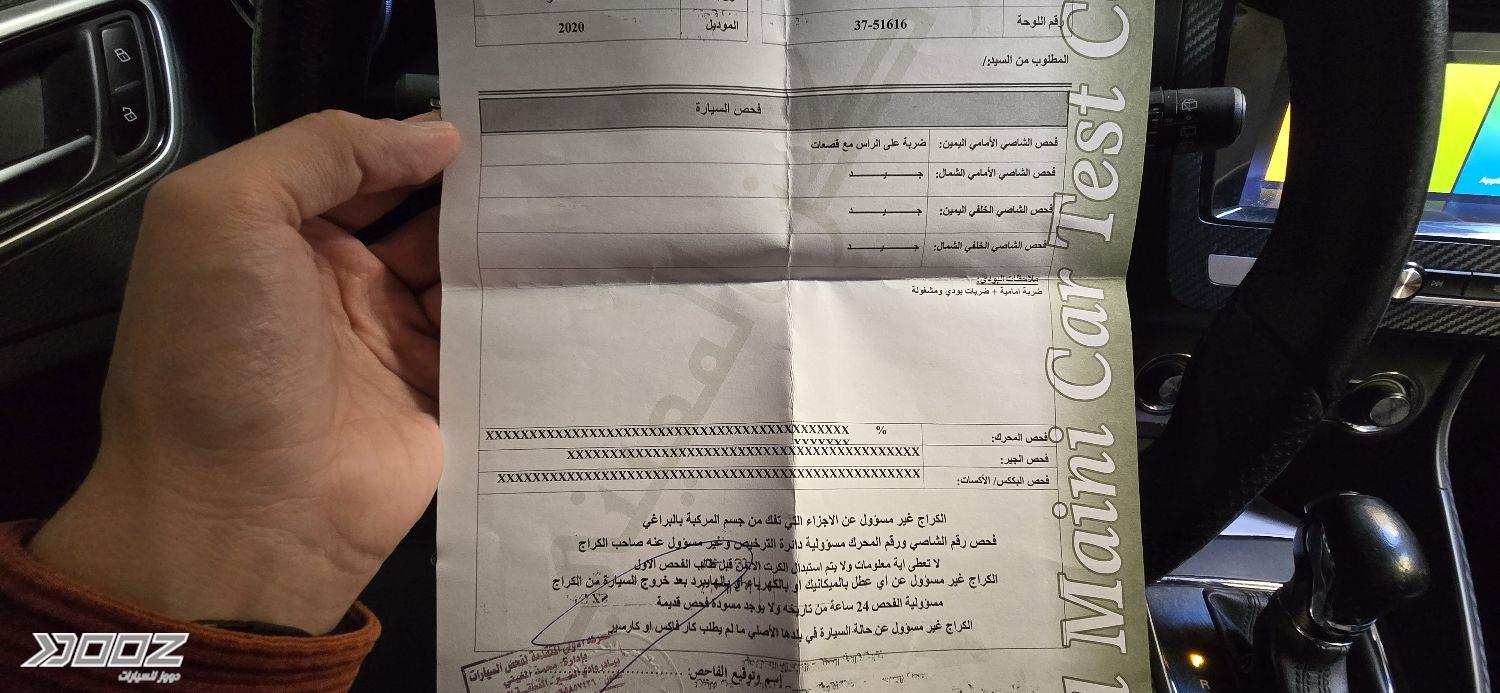 رقم اللوحة 37-51616 الموديل 2020
المطلوب من السيد:/
فحص السيارة
فحص الشاصي الأمامي اليمين: ضربة على الراس مع قصعات
فحص الشاصي الأمامي الشمال: جـــــيـــــد
فحص الشاصي الخلفي اليمين: جـــــيـــــد
فحص الشاصي الخلفي الشمال: جـــــيـــــد
ملاحظات البودي:
ضربة امامية + ضربات بودي ومشغولة
فحص المحرك: % XXXXXXXXXXXXXXXXXXXXXXXXXXXXXXXXXXXXXXXXX
XXXXXXX
فحص الجير: XXXXXXXXXXXXXXXXXXXXXXXXXXXXXXXXXXXXXXXX
فحص البككس/ الأكسات: XXXXXXXXXXXXXXXXXXXXXXXXXXXXXXXXXXXXXXXXXXXXXXXX
الكراج غير مسؤول عن الاجزاء التي تفك من جسم المركبة بالبراغي
فحص رقم الشاصي ورقم المحرك مسؤولية دائرة الترخيص وغير مسؤول عنه صاحب الكراج
لا تعطى اية معلومات ولا يتم استبدال الكرت الأمن قبل طالب الفحص الاول
الكراج غير مسؤول عن اي عطل بالميكانيك او بالكهرباء او بالهايبرد بعد خروج السيارة من الكراج
مسؤولية الفحص 24 ساعة من تاريخه ولا يوجد مسودة فحص قديمة
الكراج غير مسؤول عن حالة السيارة في بلدها الأصلي ما لم يطلب كار فاكس او كارسير
إسم وتوقيع الفاحص:
Maini Car Test C
DOOZ
دووز للسيارات
R